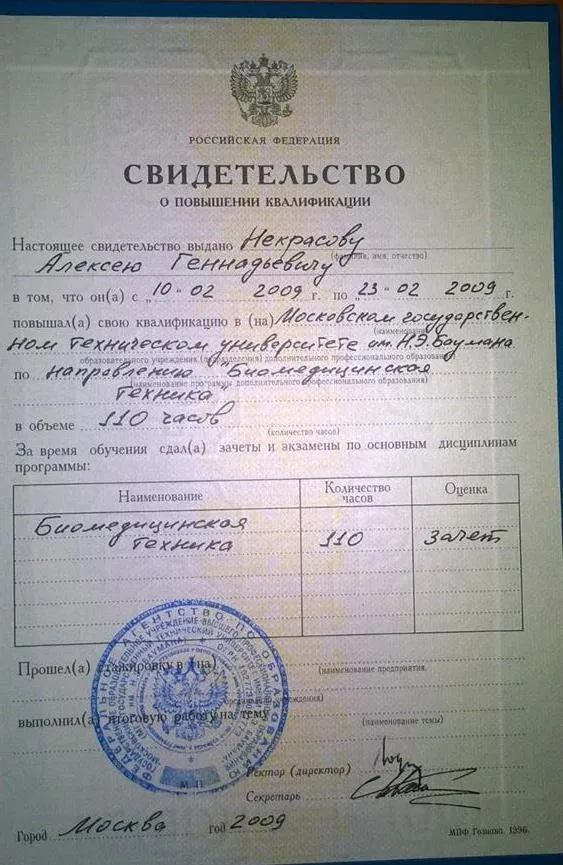 РОССИЙСКАЯ ФЕДЕРАЦИЯ
СВИДЕТЕЛЬСТВО
О ПОВЫШЕНИИ КВАЛИФИКАЦИИ
Настоящее свидетельство выдано Некрасову
(фамилия, имя, отчество)
Алексею Геннадьевичу
в том, что он(а) с „10" 02 2009 г. по „23" 02 2009 г.
повышал(а) свою квалификацию в (на) Московском государствен-
(наименование
ном техническом университете им. Н.Э. Баумана
образовательного учреждения (подразделения) дополнительного профессионального образования)
по направлению "Биомедицинская
(наименование программы дополнительного профессионального образования)
техника
в объеме 110 часов
(количество часов)
За время обучения сдал(а) зачеты и экзамены по основным дисциплинам
программы:
Наименование Количество часов Оценка
Биомедицинская
техника 110 зачет
Прошел(а) стажировку в (на)
(наименование предприятия,
организации, учреждения)
выполнил(а) итоговую работу на тему
(наименование темы)
ФЕДЕРАЛЬНОЕ АГЕНТСТВО ПО ОБРАЗОВАНИЮ
М П
Ректор (директор)
Секретарь
Город Москва год 2009
МПФ Гознака. 1996.